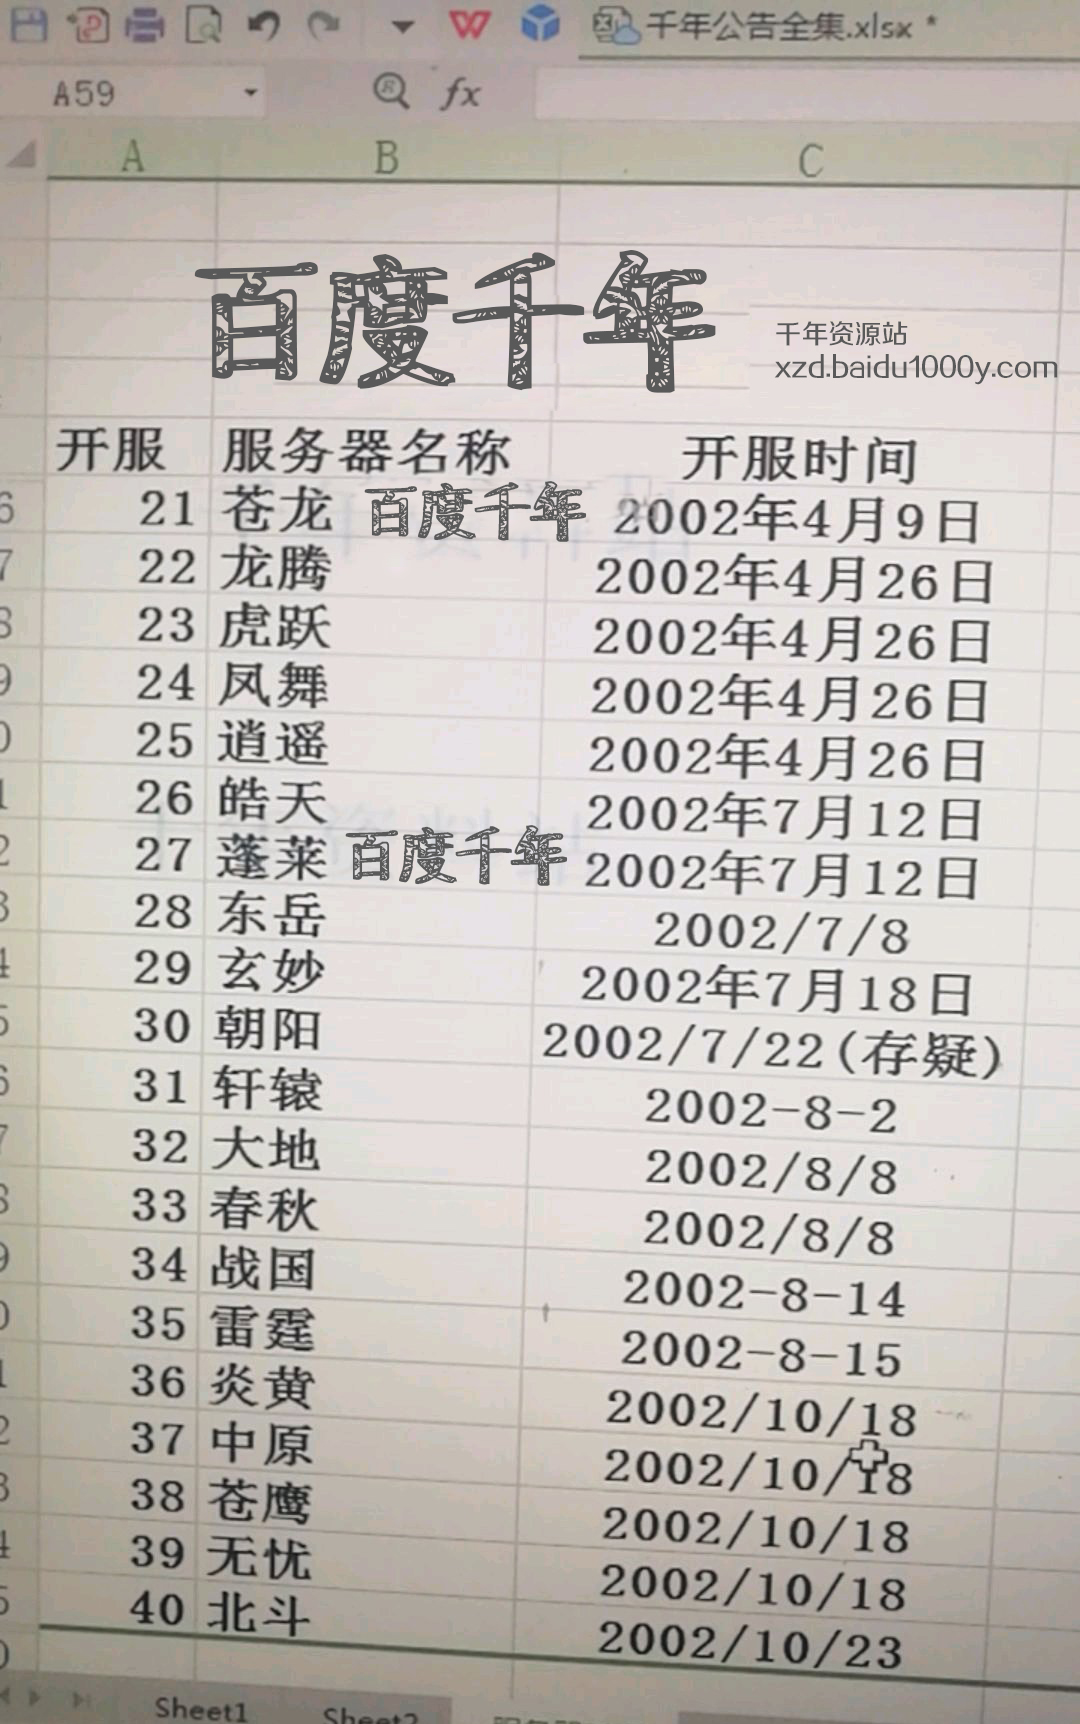 千年公告全集.xlsx *
A59
fx
A B C
百度千年
千年资源站
xzd.baidu1000y.com
开服 服务器名称 开服时间
21 苍龙 百度千年 2002年4月9日
22 龙腾 2002年4月26日
23 虎跃 2002年4月26日
24 凤舞 2002年4月26日
25 逍遥 2002年4月26日
26 皓天 2002年7月12日
27 蓬莱 百度千年 2002年7月12日
28 东岳 2002/7/8
29 玄妙 2002年7月18日
30 朝阳 2002/7/22(存疑)
31 轩辕 2002-8-2
32 大地 2002/8/8
33 春秋 2002/8/8
34 战国 2002-8-14
35 雷霆 2002-8-15
36 炎黄 2002/10/18
37 中原 2002/10/18
38 苍鹰 2002/10/18
39 无忧 2002/10/18
40 北斗 2002/10/23
Sheet1 Sheet2